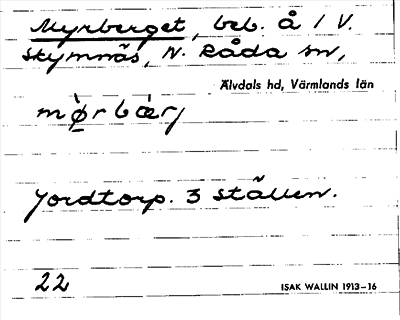 Myrberget, beb. å 1 V.
Skymnäs, N. Råda sn,
Älvdals hd, Värmlands län
Jordtorp. 3 ställen.
22
ISAK WALLIN 1913–16